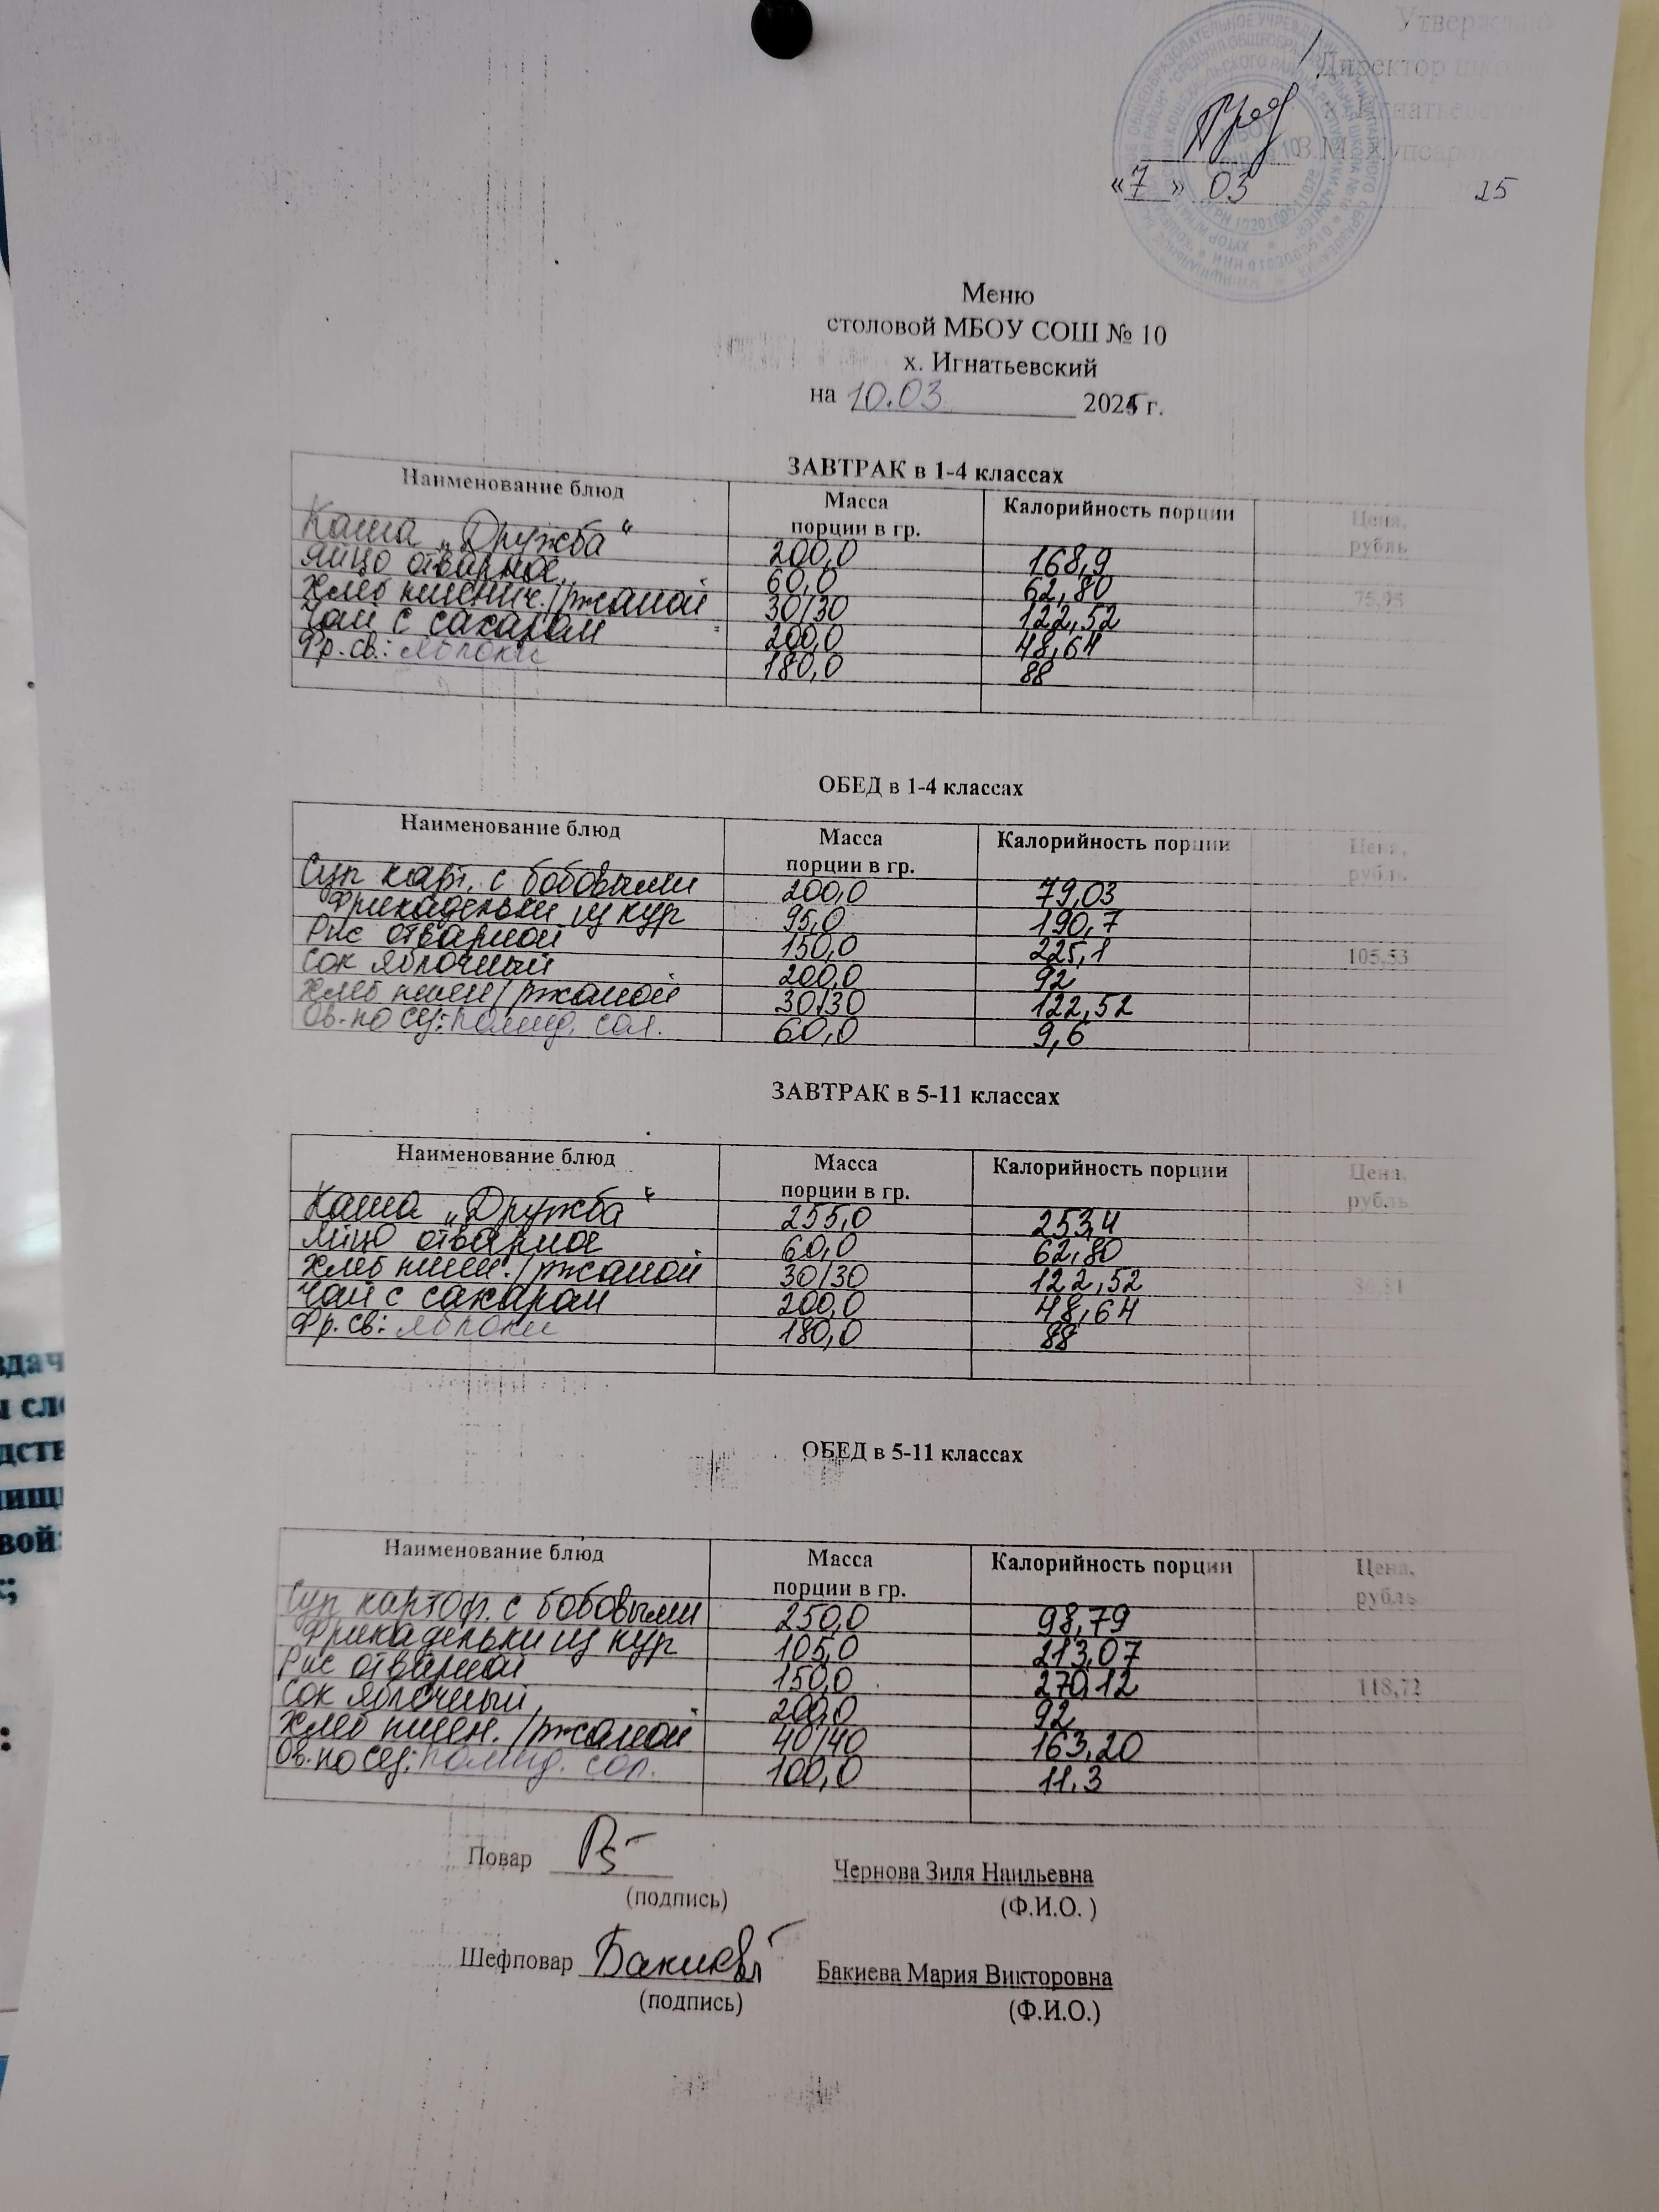 Утверждаю
Директор школы
х. Игнатьевский
«7» 03 25
Меню
столовой МБОУ СОШ № 10
х. Игнатьевский
на 10.03 2025 г.
ЗАВТРАК в 1-4 классах
Наименование блюд Масса порции в гр. Калорийность порции Цена, рубль
Каша „Дружба“ 200,0 168,9
Яйцо отварное 60,0 62,80 75,95
Хлеб пшенич./ржаной 30/30 122,52
Чай с сахаром 200,0 48,64
Фр. св.: яблоки 180,0 88
ОБЕД в 1-4 классах
Наименование блюд Масса порции в гр. Калорийность порции Цена, рубль
Суп карт. с бобовыми 200,0 79,03
Фрикадельки из кур 95,0 190,7
Рис отварной 150,0 225,1 105,53
Сок яблочный 200,0 92
Хлеб пшен/ржаной 30/30 122,52
Ов. по сез: помид. сол. 60,0 9,6
ЗАВТРАК в 5-11 классах
Наименование блюд Масса порции в гр. Калорийность порции Цена, рубль
Каша „Дружба“ 255,0 253,4
Яйцо отварное 60,0 62,80
Хлеб пшен./ржаной 30/30 122,52
Чай с сахаром 200,0 48,64
Фр. св: яблоки 180,0 88
ОБЕД в 5-11 классах
Наименование блюд Масса порции в гр. Калорийность порции Цена, рубль
Суп картоф. с бобовыми 250,0 98,79
Фрикадельки из кур 105,0 213,07
Рис отварной 150,0 270,12 118,72
Сок яблочный 200,0 92
Хлеб пшен./ржаной 40/40 163,20
Ов. по сез: помид. сол. 100,0 11,3
Повар Чернова Зиля Наильевна
(подпись) (Ф.И.О. )
Шефповар Бакиева Бакиева Мария Викторовна
(подпись) (Ф.И.О.)